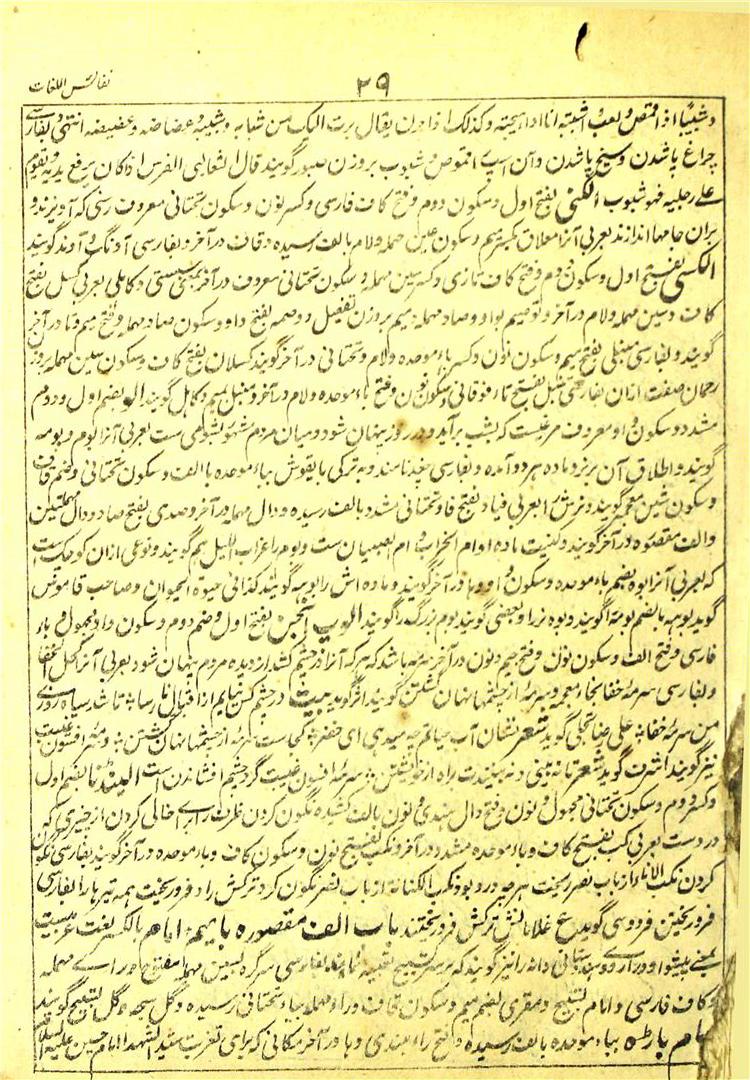 نفائس اللغات
٢٩
و شبیبًا اذا قمص و لعب و اشببته انا اذا هیجته و کذلک اذا حرن یقال برئت الیک من شبابه و شبیبه و عضاضه و عضیضه انتهی و بفارسی
چراغ پا شدن و سیخ پا شدن و آن اسپ را قموص و شبوب بروزن صبور گویند قال الثعالبی الفرس اذا کان یرفع یدیه و یقوم
علی رجلیه فهو شبوب الگنی بفتح اول و سکون دوم و فتح کاف فارسی و کسر نون و سکون تحتانی معروف رسنی که آویزند و
بران جامها اندازند بعربی آنرا معلاق بکسر میم و سکون عین مهمله و لام بالف رسیده و قاف در آخر و بفارسی آونگ و آوند گویند
الکسی بفتح اول و سکون دوم و فتح کاف تازی و کسر سین مهمله و سکون تحتانی معروف در آخر بمعنی سستی و کاهلی بعربی کسل بفتح
کاف و سین مهمله و لام در آخر و توصیم بواو و صاد مهمله و میم بروزن تفعیل و وصمه بفتح واو و سکون صاد مهمله و فتح میم و تا در آخر
گویند و بفارسی منبلی بفتح میم و سکون نون و کسر باء موحده و لام و تحتانی در آخر گویند کسلان بفتح کاف و سکون سین مهمله بروزن
رحمان صفت ازان بفارسی تنبل بفتح تاء فوقانی و سکون نون و فتح باء موحده و لام در آخر و منبل بمیم و کاهل گویند الو بضم اول و دوم
مشدد و سکون واو معروف مرغیست که بشب برآید و در روز پنهان شود و میان مردم شهور بشومی ست بعربی آنرا بوم و بومه
گویند و اطلاق آن بر نر و ماده هر دو آمده و بفارسی چغد نامند و بترکی بایقوش بباء موحده با الف و سکون تحتانی و ضم قاف
و سکون شین معجمه گویند و نرش را بعربی فیاد بفتح فا و تحتانی مشدد بالف رسیده و دال مهمله در آخر و صدی بفتح صاد و دال مهملتین
و الف مقصوره در آخر گویند و کنیت ماده او ام الخراب و ام الصبیان ست و بوم را غراب اللیل هم گویند و نوعی ازان کوچک است
که بعربی آنرا بوه بضم باء موحده و سکون واو و ها در آخر گویند و ماده اش را بوهه گویند کذا فی حیوة الحیوان و صاحب قاموس
گوید بوهه بالضم بومه را گویند و بوه نر را و بعضی گویند بوم بزرگ را گویند الوپ انجن بفتح اول و ضم دوم و سکون واو مجهول و باء
فارسی و فتح الف و سکون نون و فتح جیم و نون در آخر سرمه باشد که هر که آنرا در چشم کشد از دیده مردم پنهان شود بعربی آنرا کحل الخفا
و بفارسی سرمه خفا بخاء معجمه و سرمه از چشمها پنهان گشتن گویند اثر گوید بیت در چشم کس نیایم از اقبال نارسا ÷ تا شد سیاه روزی
من سرمهٔ خفا ÷ علی رضا تجلی گوید شعر نشان آب حیاتم چه میدهی ای خضر ÷ کجاست سرمه از چشمها پنهان گشتن ÷ و سرمه افسون غیبت
نیز گویند اشرف گوید شعر تا نه بینی و نه بینندت براه از خویشتن ÷ سرمهٔ افسون غیبت گرد چشم افشاندن است الینڈنا بضم اول
و کسر دوم و سکون تحتانی مجهول و نون و فتح دال هندی و نون بالف کشیده نگون کردن ظرف را برای خالی کردن از چیزی که
در وست بعربی کب بفتح کاف و باء موحده مشدد در آخر و نکب بفتح نون و سکون کاف و باء موحده در آخر گویند بفارسی نگون
کردن نکب الاناء از باب نصر ریخت هر چه در و بود نکب الکنانة از باب نصر نگون کرد ترکش را و فرو ریخت همه تیرها را بفارسی
فرو ریختن فردوسی گوید ع غلامانش ترکش فرو ریختند باب الف مقصوره با میم امام بالکسر لغت عربیست
بمعنی پیشوا و در اردوی هندوستانی دانه را نیز گویند که بر سر تسبیح تعبیه نمایند بفارسی سرگره بسین مهمله مفتوح و راء مهمله
و کاف فارسی و امام تسبیح و مقری بضم میم و سکون قاف و راء مهمله بیاء تحتانی رسیده و گل سبحه و گل تسبیح گویند
امام باڑه بباء موحده بالف رسیده و فتح راء هندی و ها در آخر مکانی که برای تعزیت سید الشهدا امام حسین علیه السلام